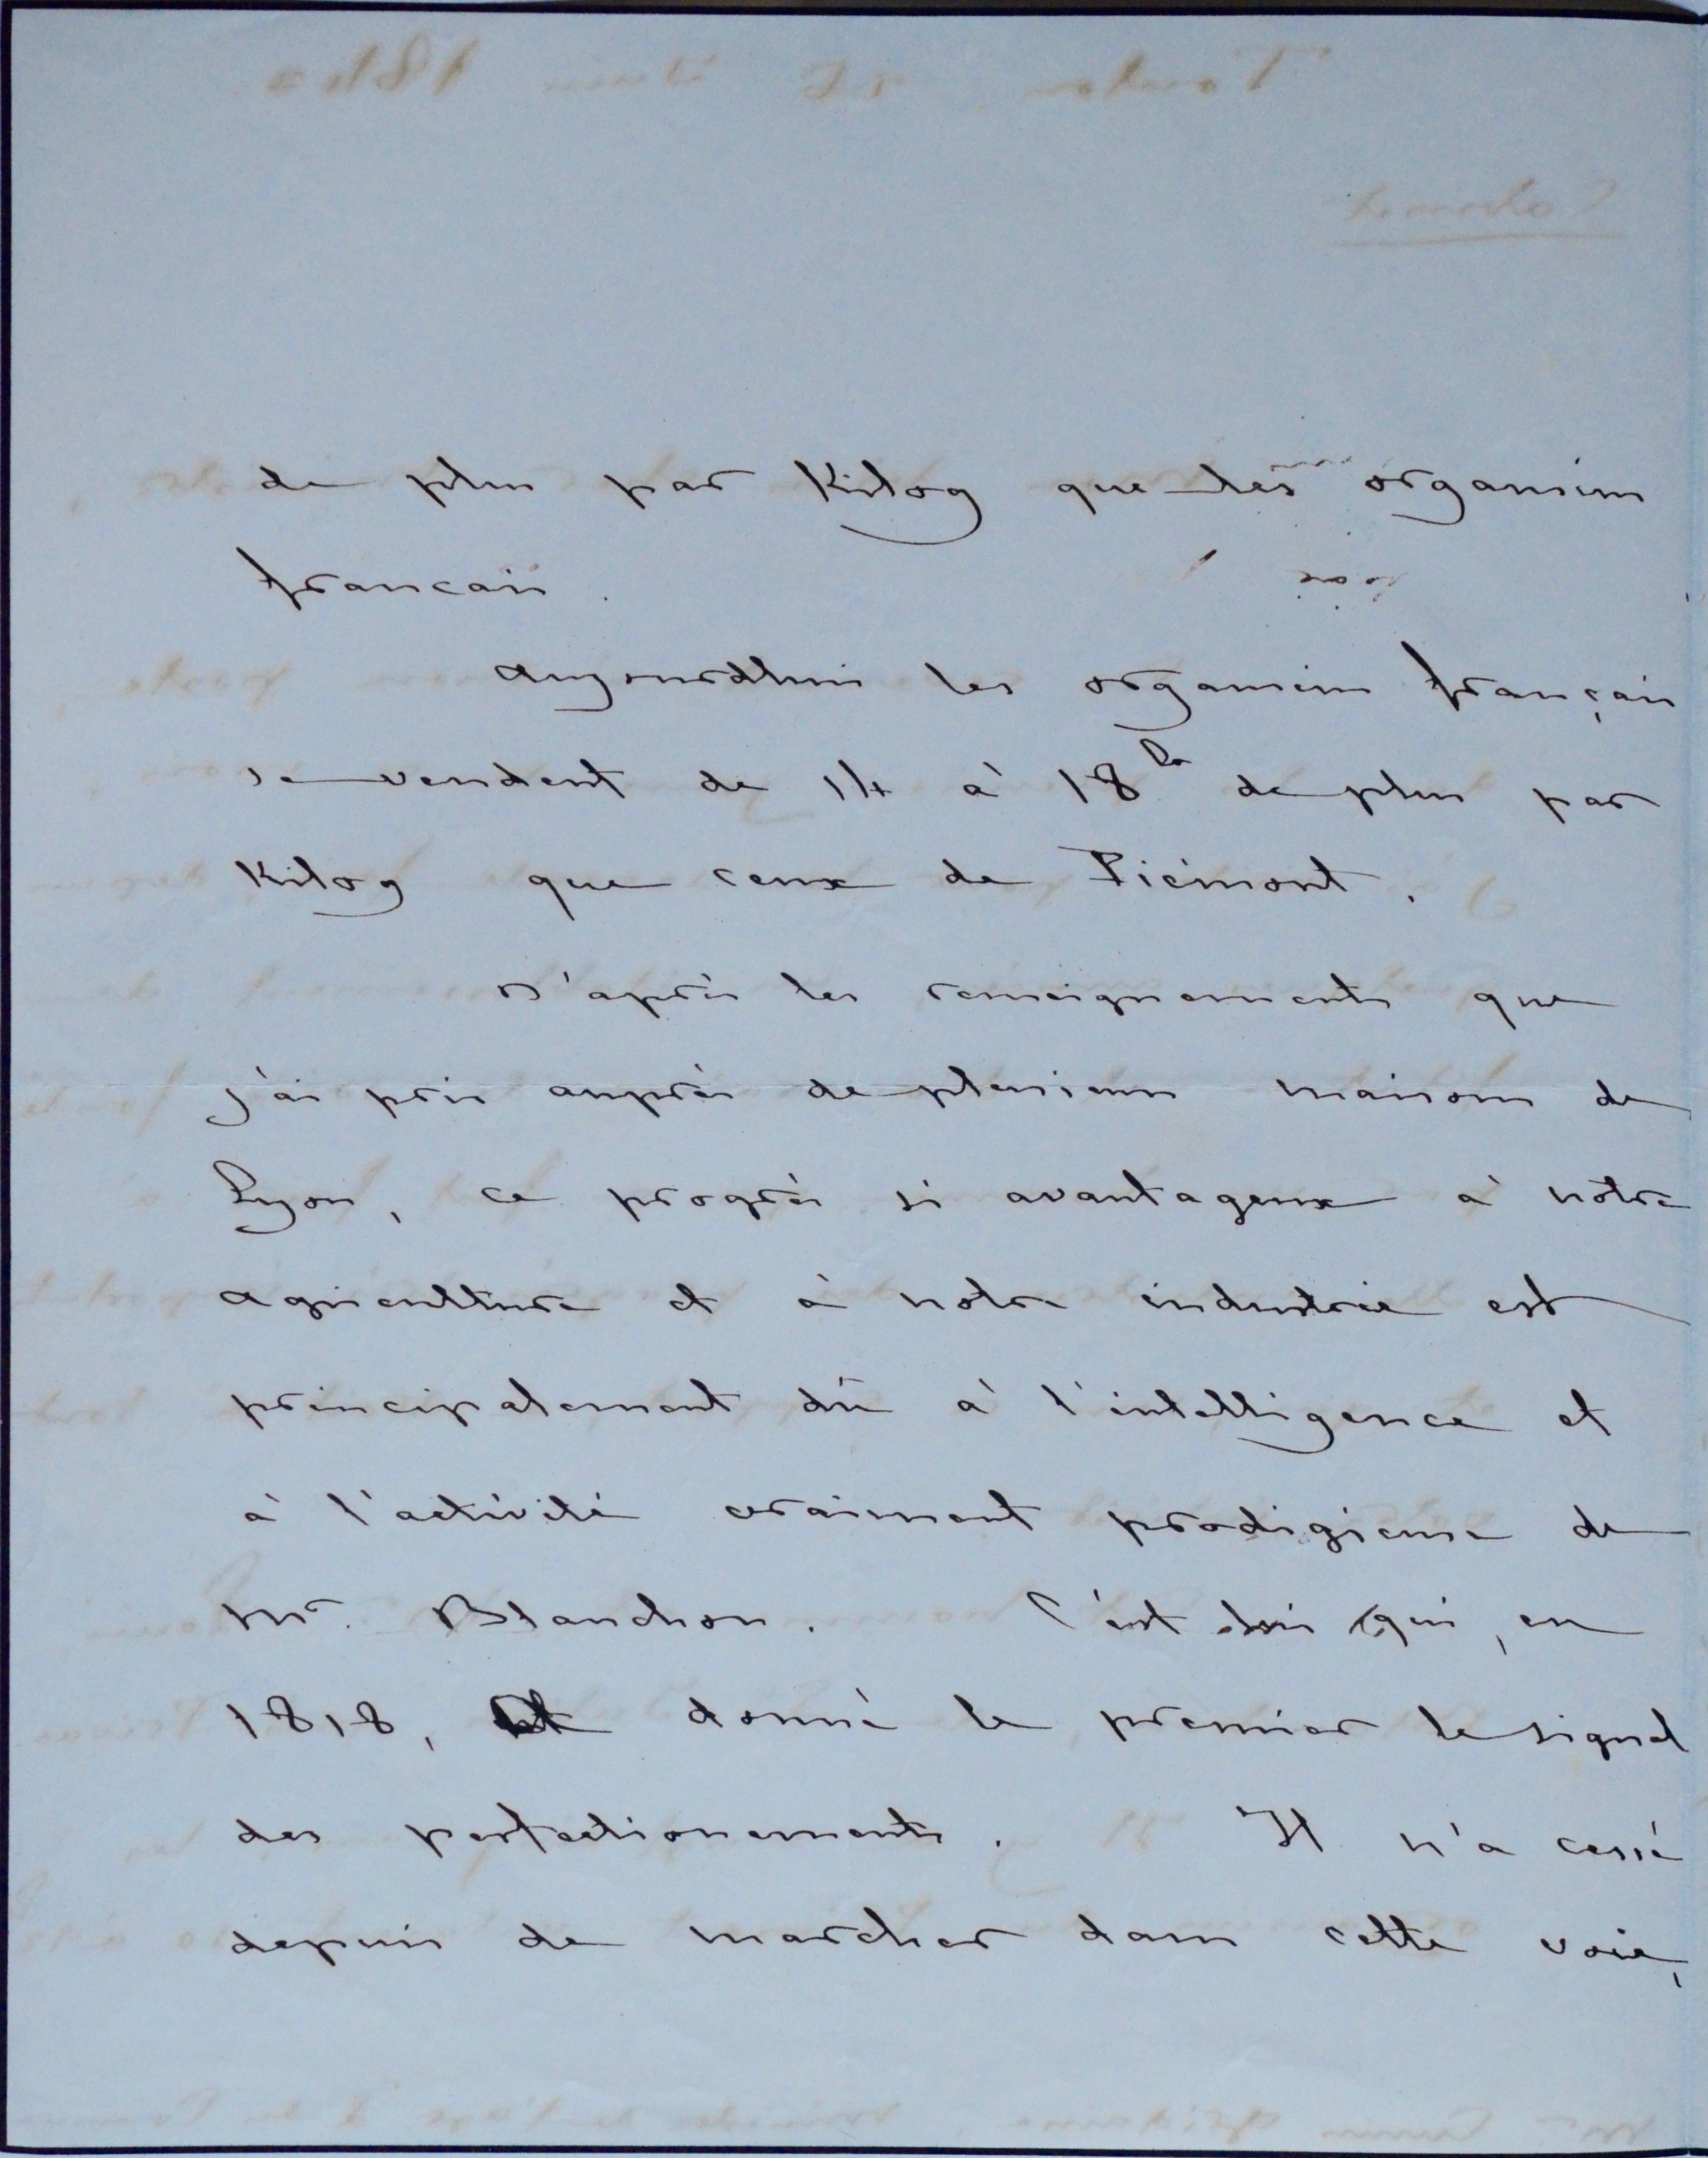 de plus par Kilog que les organsins
francais.
Aujourdhui les organsins français
se vendent de 14 à 18 de plus par
Kilog que ceux de Piémont.
D'après les renseignements que
j'ai pris auprès de plusieurs maisons de
Lyon, ce progrès si avantageux à notre
agriculture et à notre industrie est
principalement dû à l'intelligence et
à l'activité vraiment prodigieuse de
Mr. Blanchon. C'est lui qui, en
1818, donné le premier le signal
des perfectionements. Il n'a cessé
depuis de marcher dans cette voie,